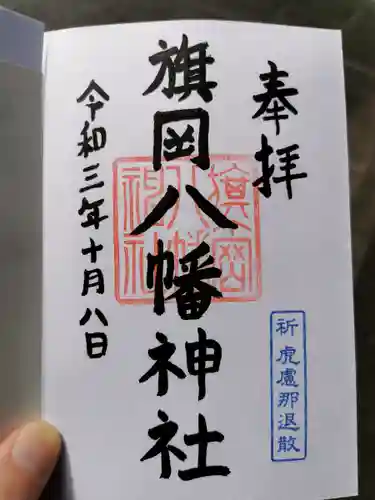 奉拝
旗岡八幡神社
令和三年十月八日
旗岡
八幡
神社
祈 虎慮那退散